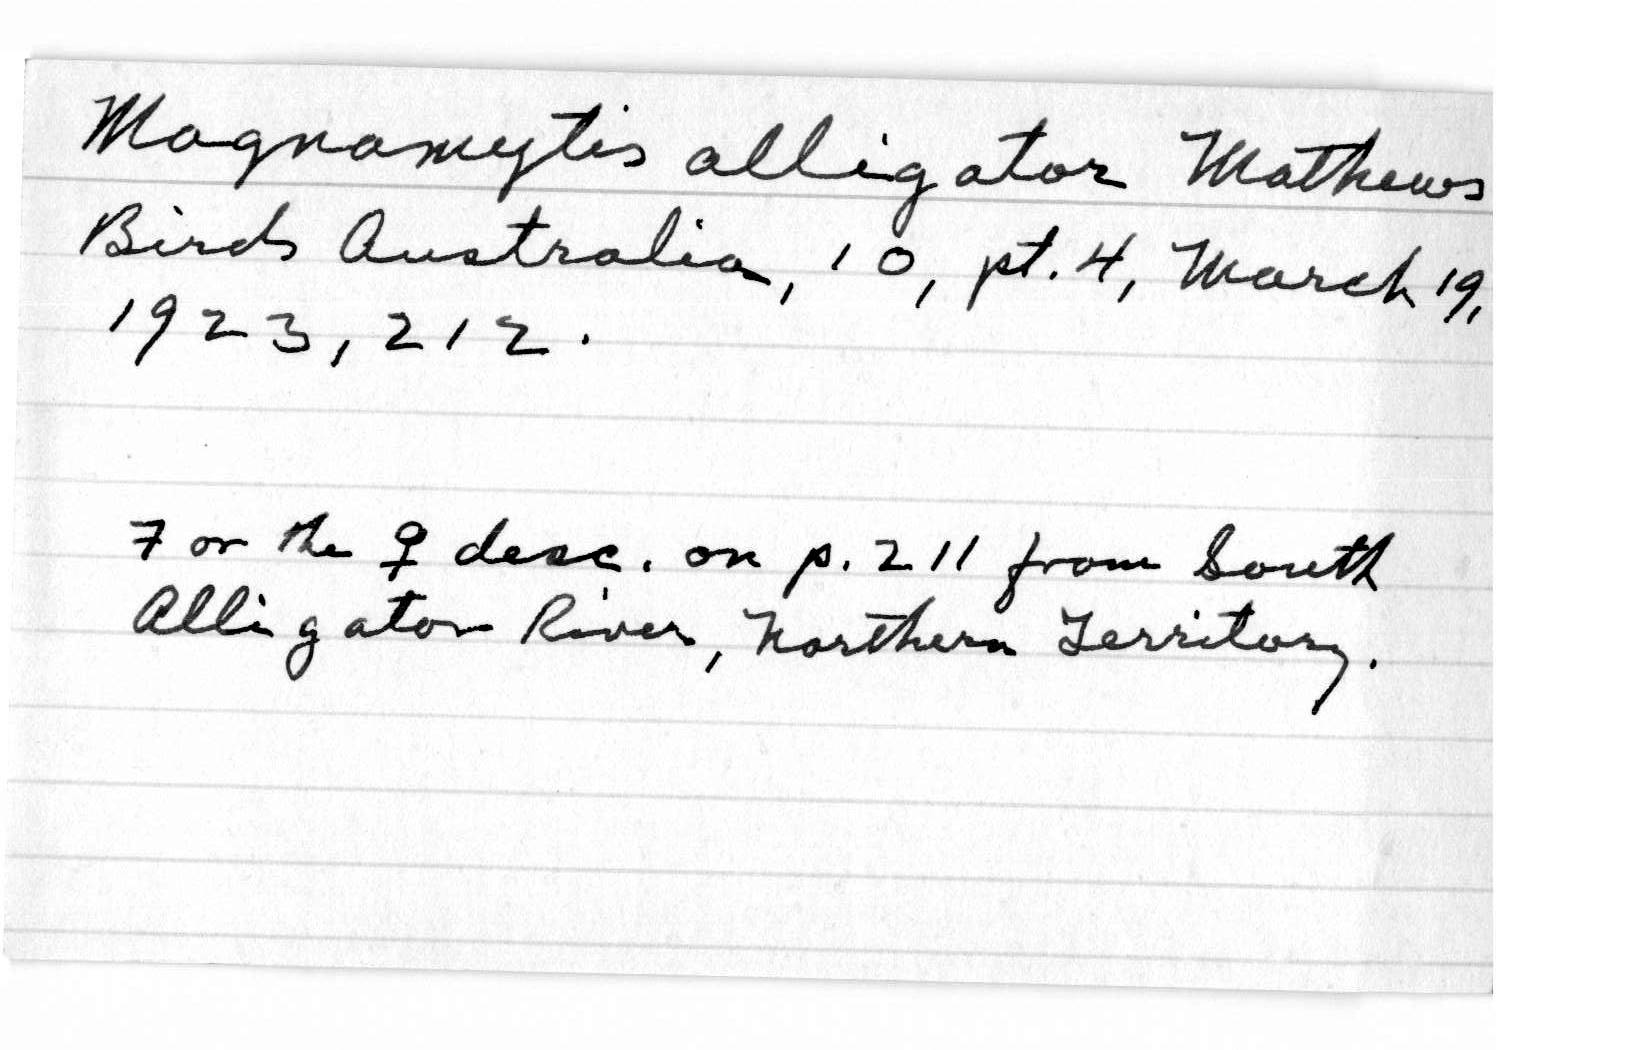 Magnamytis alligator Mathews
Birds Australia, 10, pt. 4, March 19,
1923, 212.
For the ♀ desc. on p. 211 from South
Alligator River, Northern Territory.